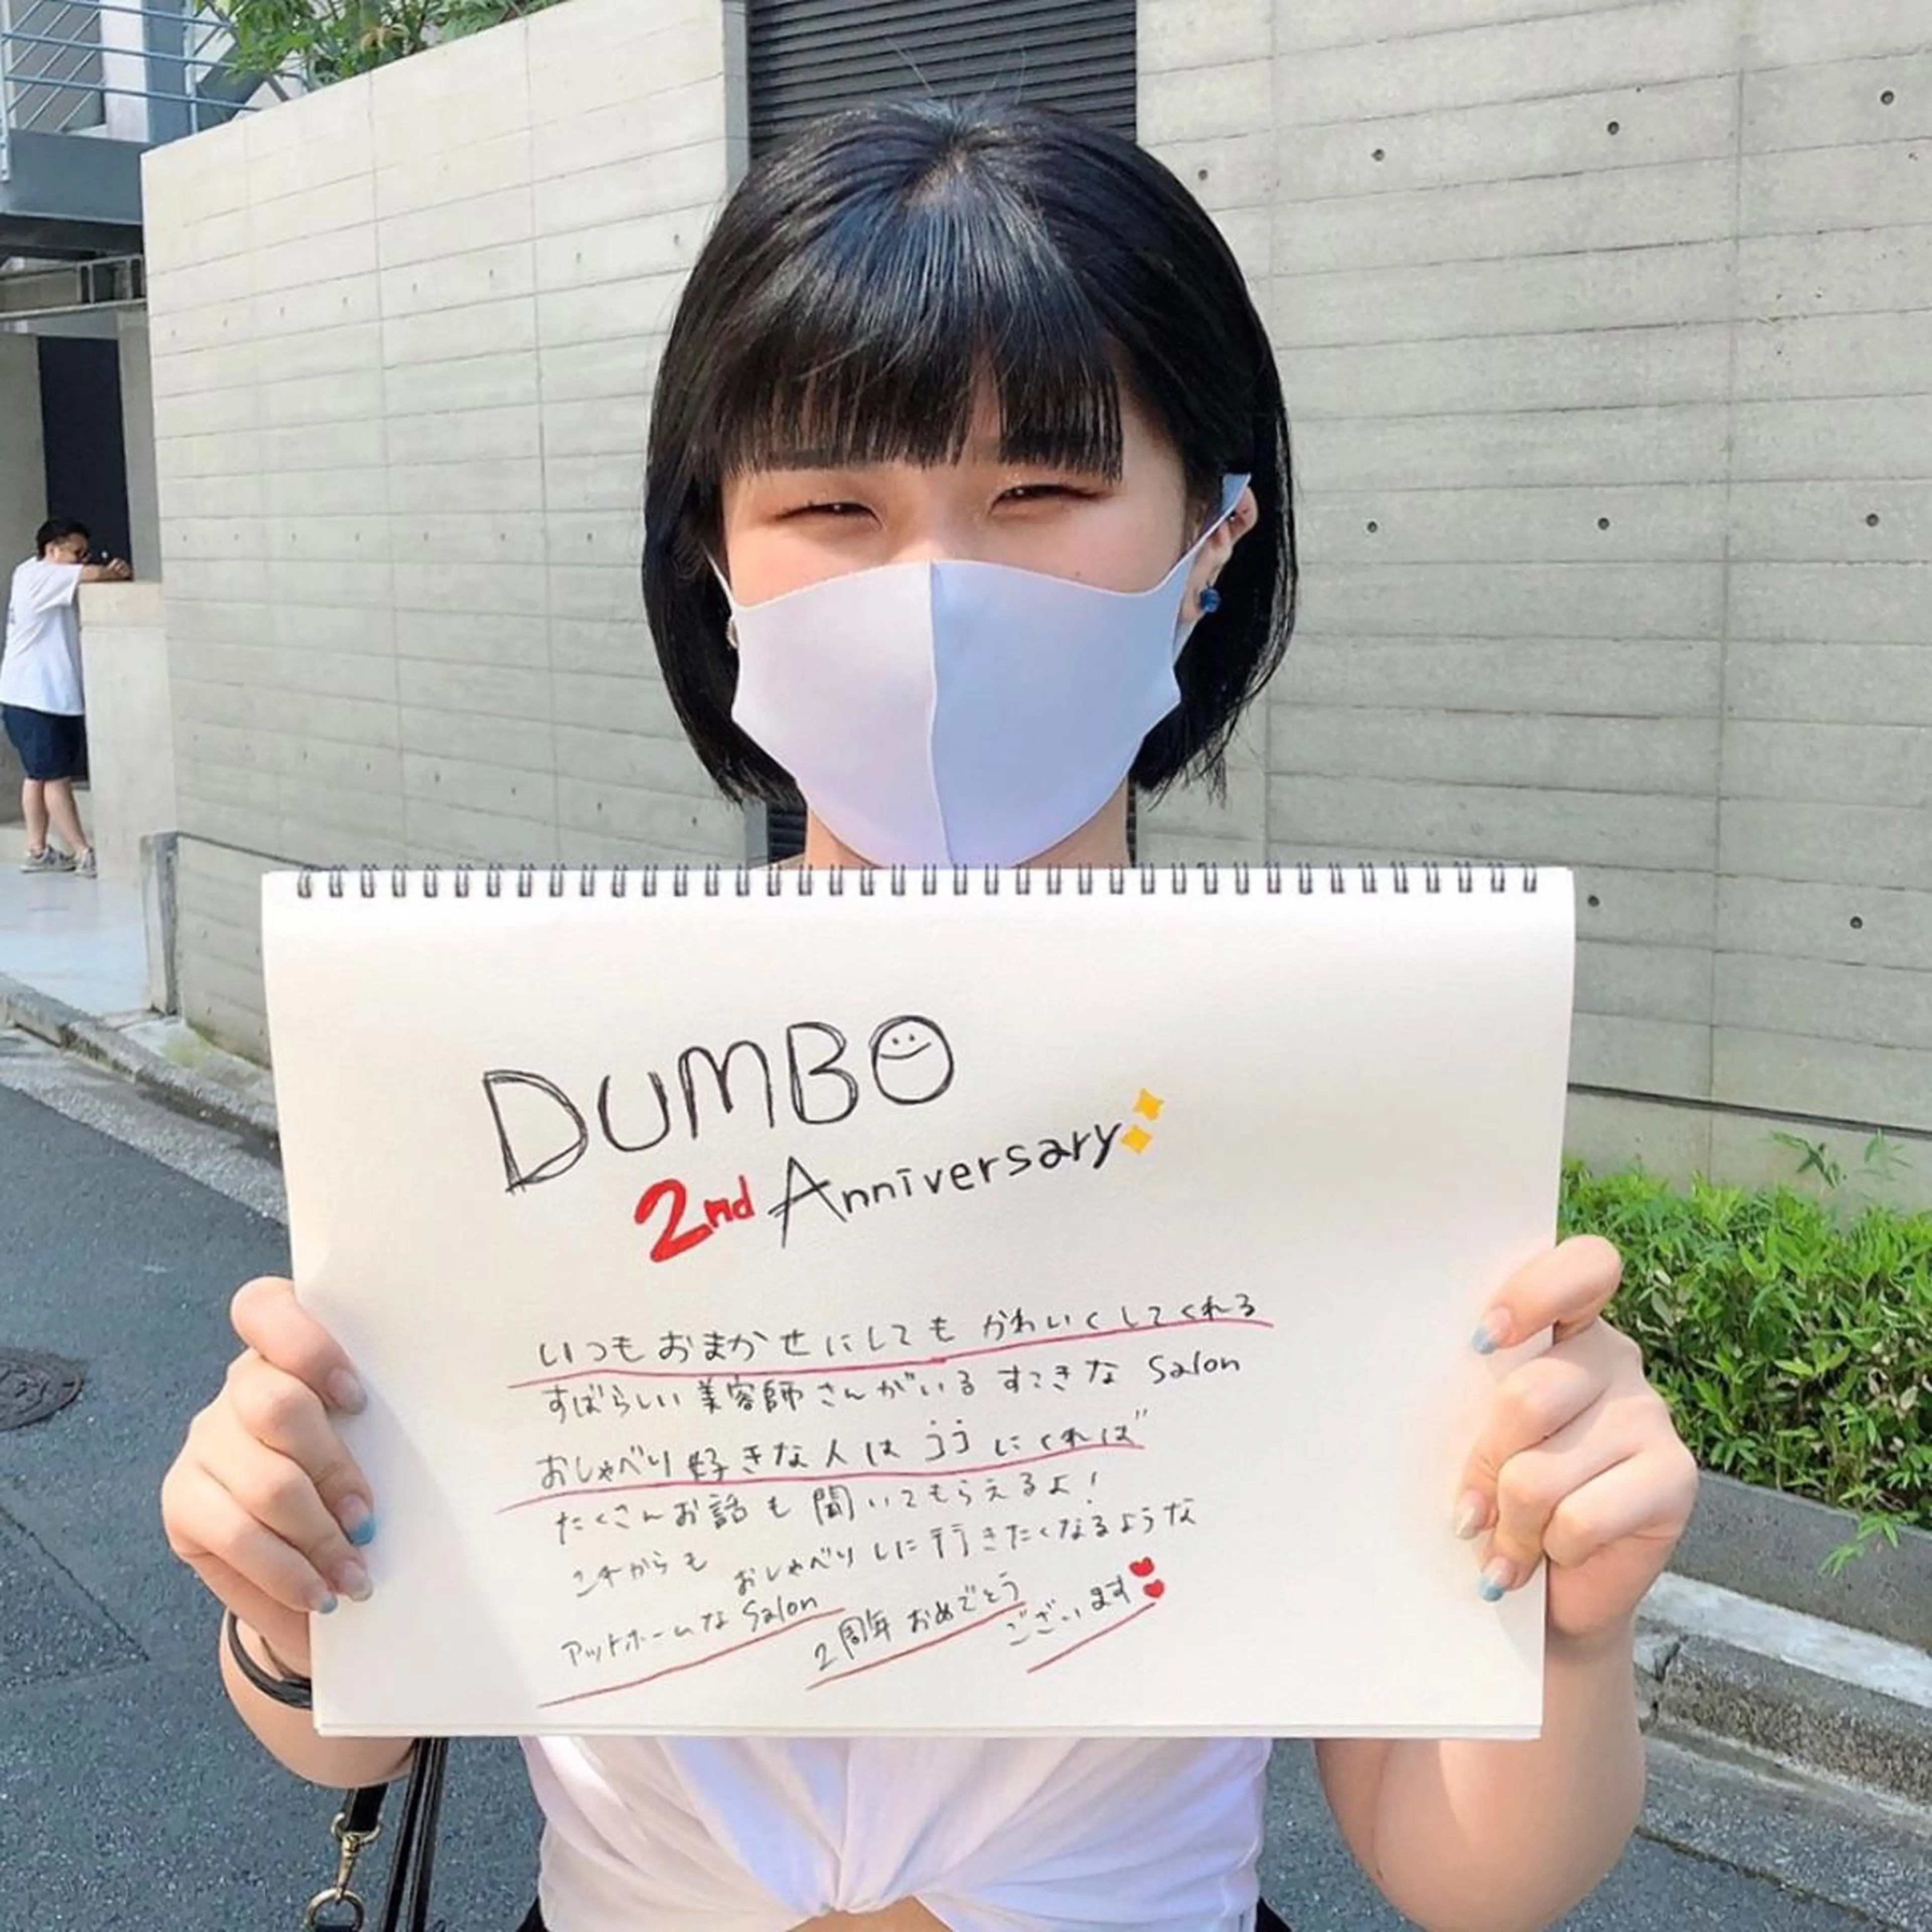 DUMBO
2nd Anniversary
いつもおまかせにしても かわいくしてくれる
すばらしい美容師さんがいる すてきな Salon
おしゃべり好きな人は ココ にくれば
たくさんお話も聞いてもらえるよ!
これからも おしゃべりしに行きたくなるような
アットホームな Salon
2周年おめでとう
ございます